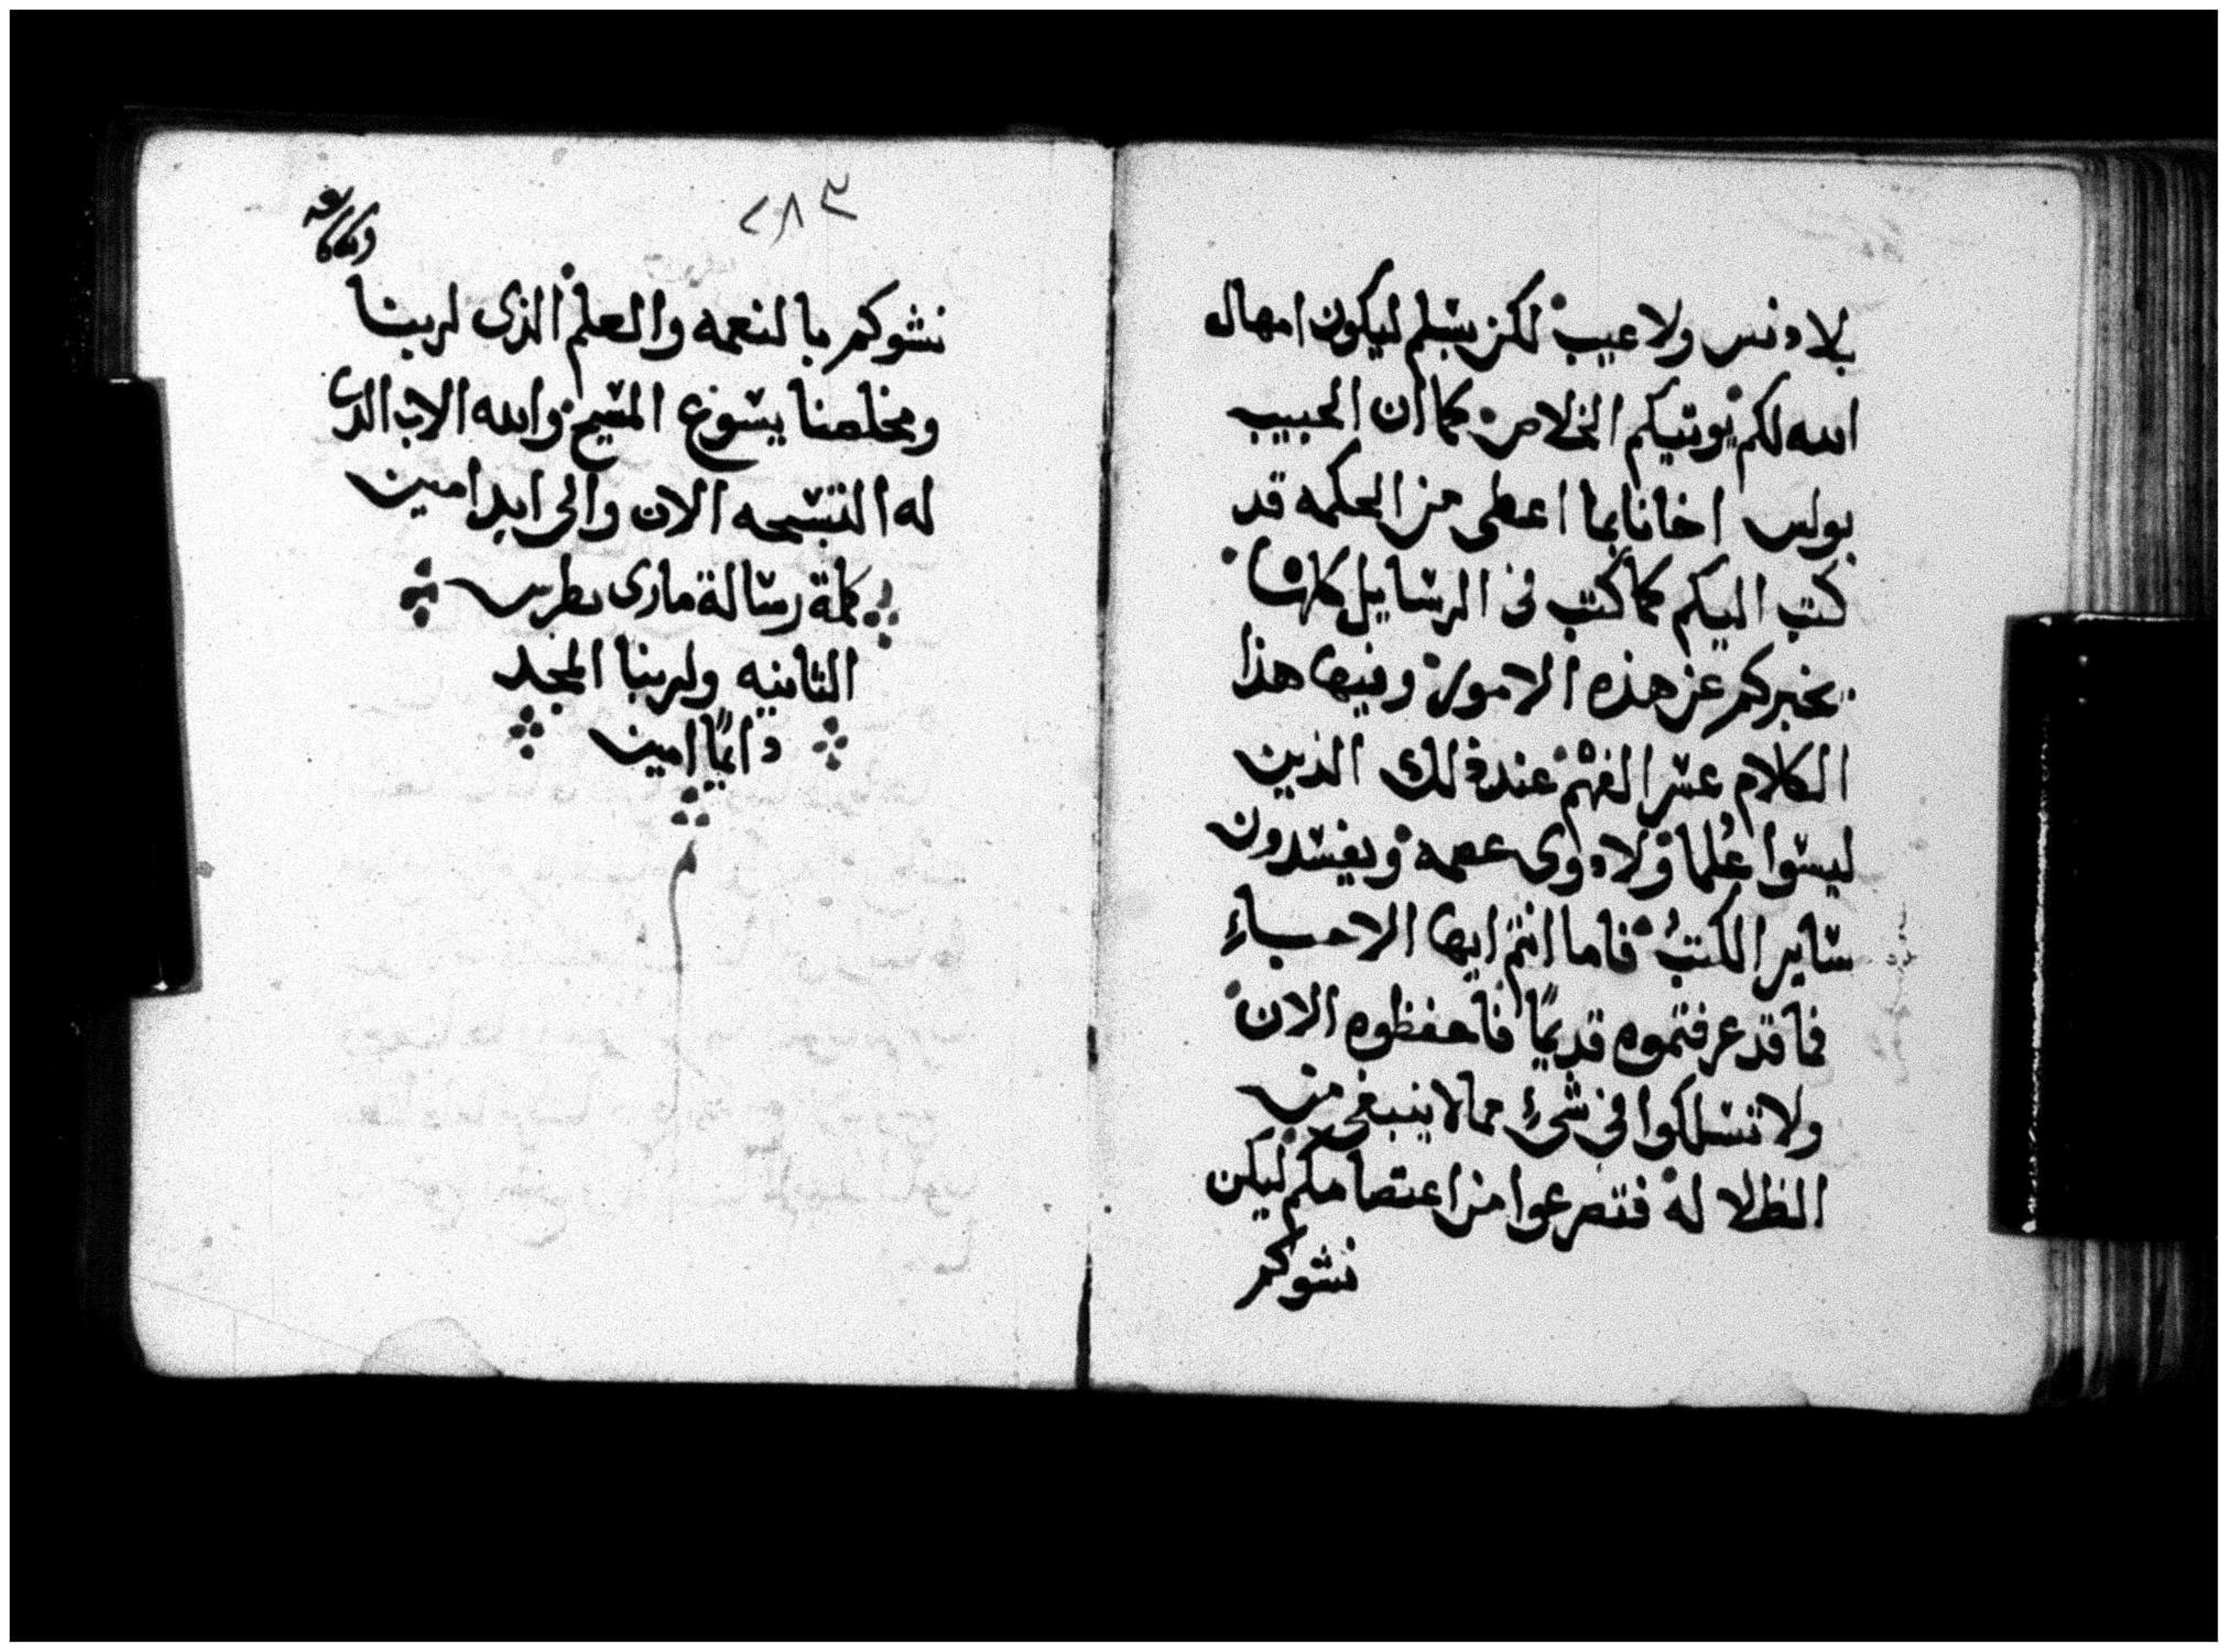 بلا دنس ولا عيب لكن بسلم ليكون امهال
الله لكم يوتيكم الخلاص كما ان الحبيب
بولس اخانا بما اعطى من الحكمه قد
كتب اليكم كما كتب فى الرسايل كلها
يخبركم عن هذه الامور وفيها هذا
الكلام عسر الفهم عند ذلك الذين
ليسوا علما ولا ذوى عصمه ويفسدون
ساير الكتب فاما انتم ايها الاحباء
فما قد عرفتموه قديمًا فاحفظوه الان
ولا تسلكوا فى شىء مما لا ينبغى من
الظلاله فتصرعوا من اعتصامكم ليكن
نشوكم
٢٨٣
نشوكم بالنعمه والعلم الذى لربنا
ومخلصنا يسوع المسيح والله الاب الذى
له التسبحه الان والى ابد امين
كملة رسالة مارى بطرس
الثانيه ولربنا المجد
دايمًا امين